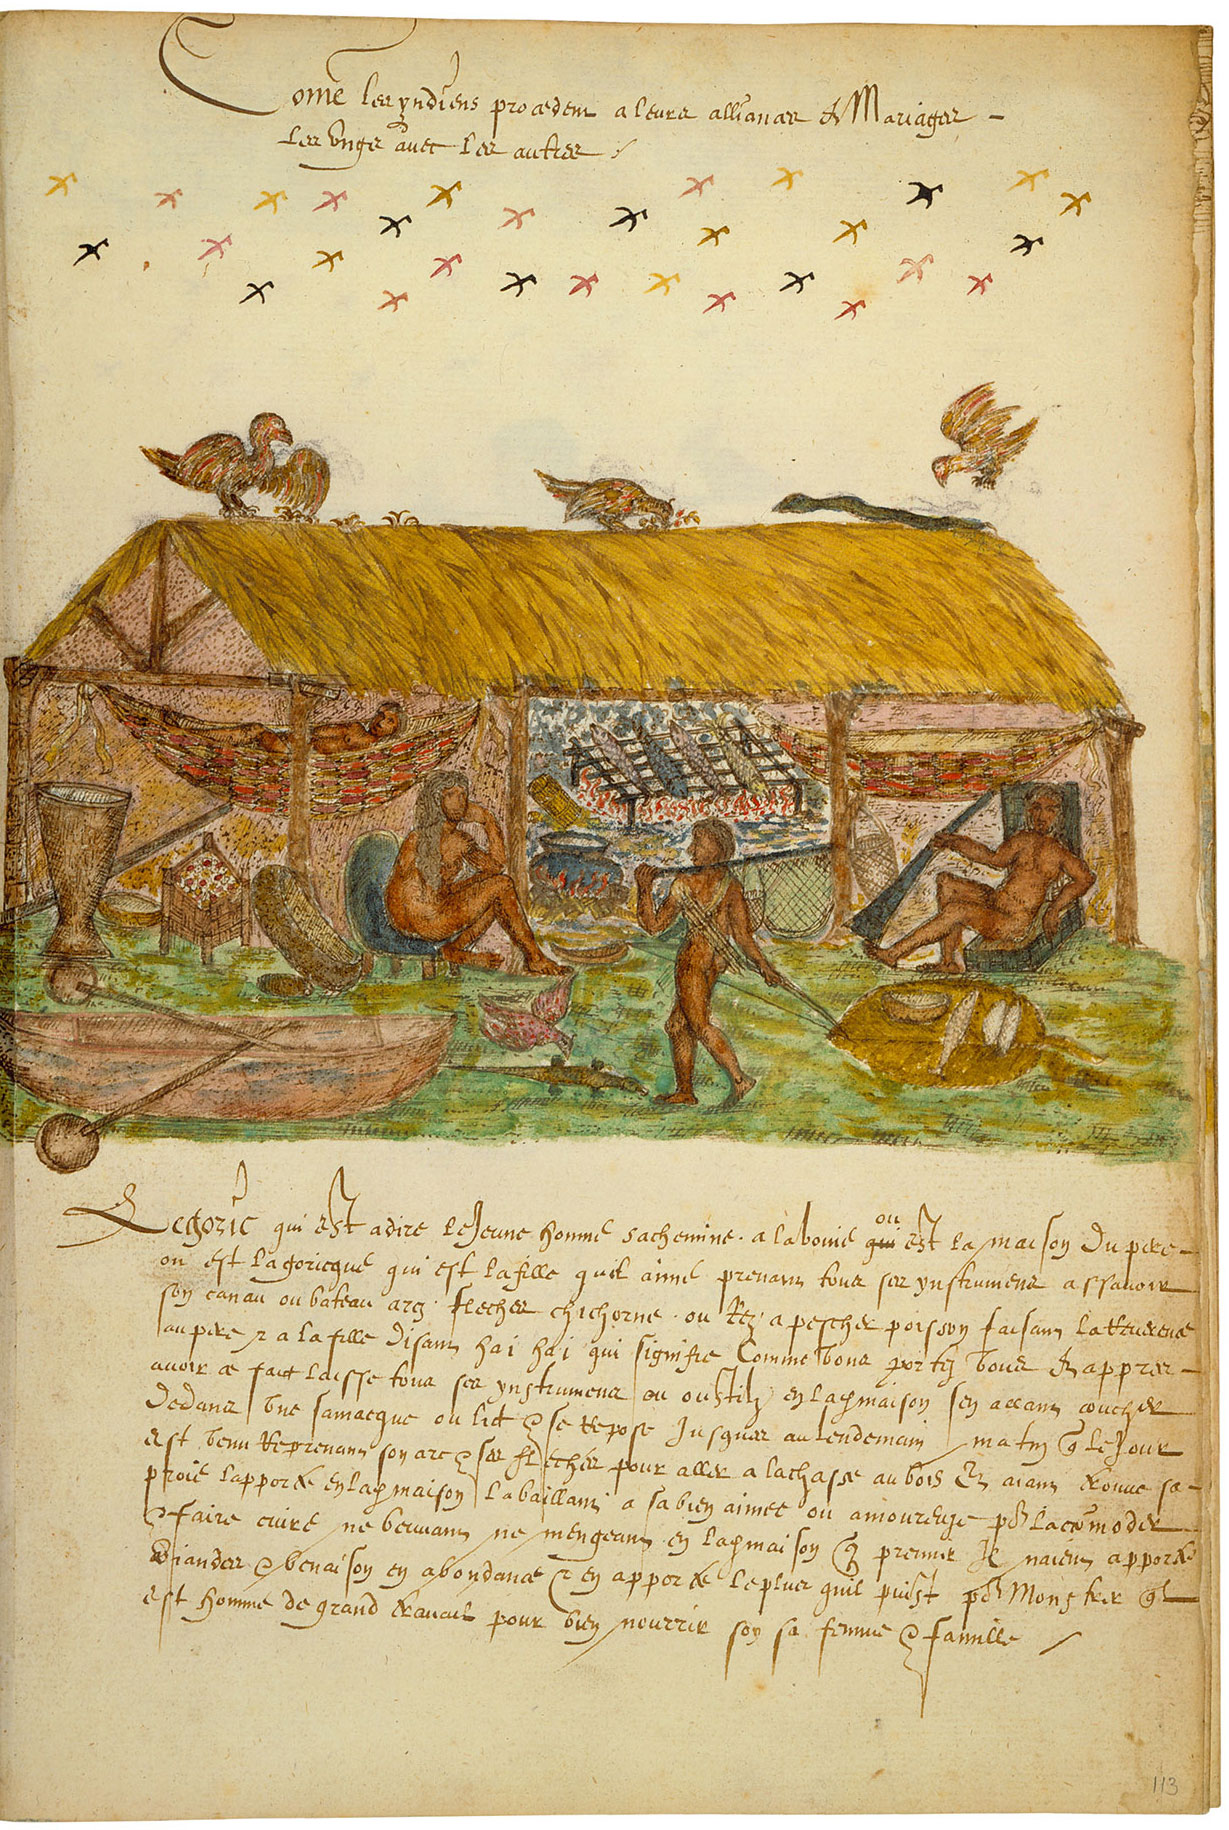 Comē les yndiens procedent a leurs alliances et Mariages
les ungs avec les autres /
Legoric qui est a dire le Jeune homme sachemine a la bouie qui ou est la maison du pere
ou est lagoricque qui est la fille quil aime prenant tous ses ynstrumens assavoir
son canau ou bateau arcz flecher chichorne ou Retz a pescher poisson faisant la Reverence
au pere & a la fille disant hai hai qui signifie Comme vous portez vous et apprez
avoir ce faict laisse tous ses ynstrumens ou oustilz en lad maison sen allant coucher
dedans une samacque ou lict & se Repose Jusques au lendemain matin que le Jour
est venu Reprenant son arc & ses flecher pour aller a la chasse au bois Et aiant trouve sa
proie lapporte en lad maison la baillant a sa bien aimee ou amoureuse pour lacōmoder
& faire cuire ne beuvant ne mengeant en lad maison que premier Il naient apporte
viandes & venaison en abondance & en apporte le plus quil puist pour Monstrer quil
est homme de grand travail pour bien nourrir son sa femme & famille /
113